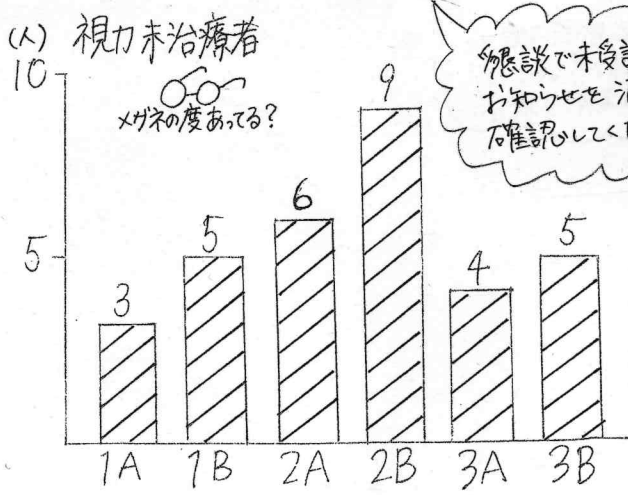 (人) 視力未治療者
10
メガネの度あってる?
懇談で未受
お知らせを
確認してく
9
6
5
5
5
4
3
1A 1B 2A 2B 3A 3B